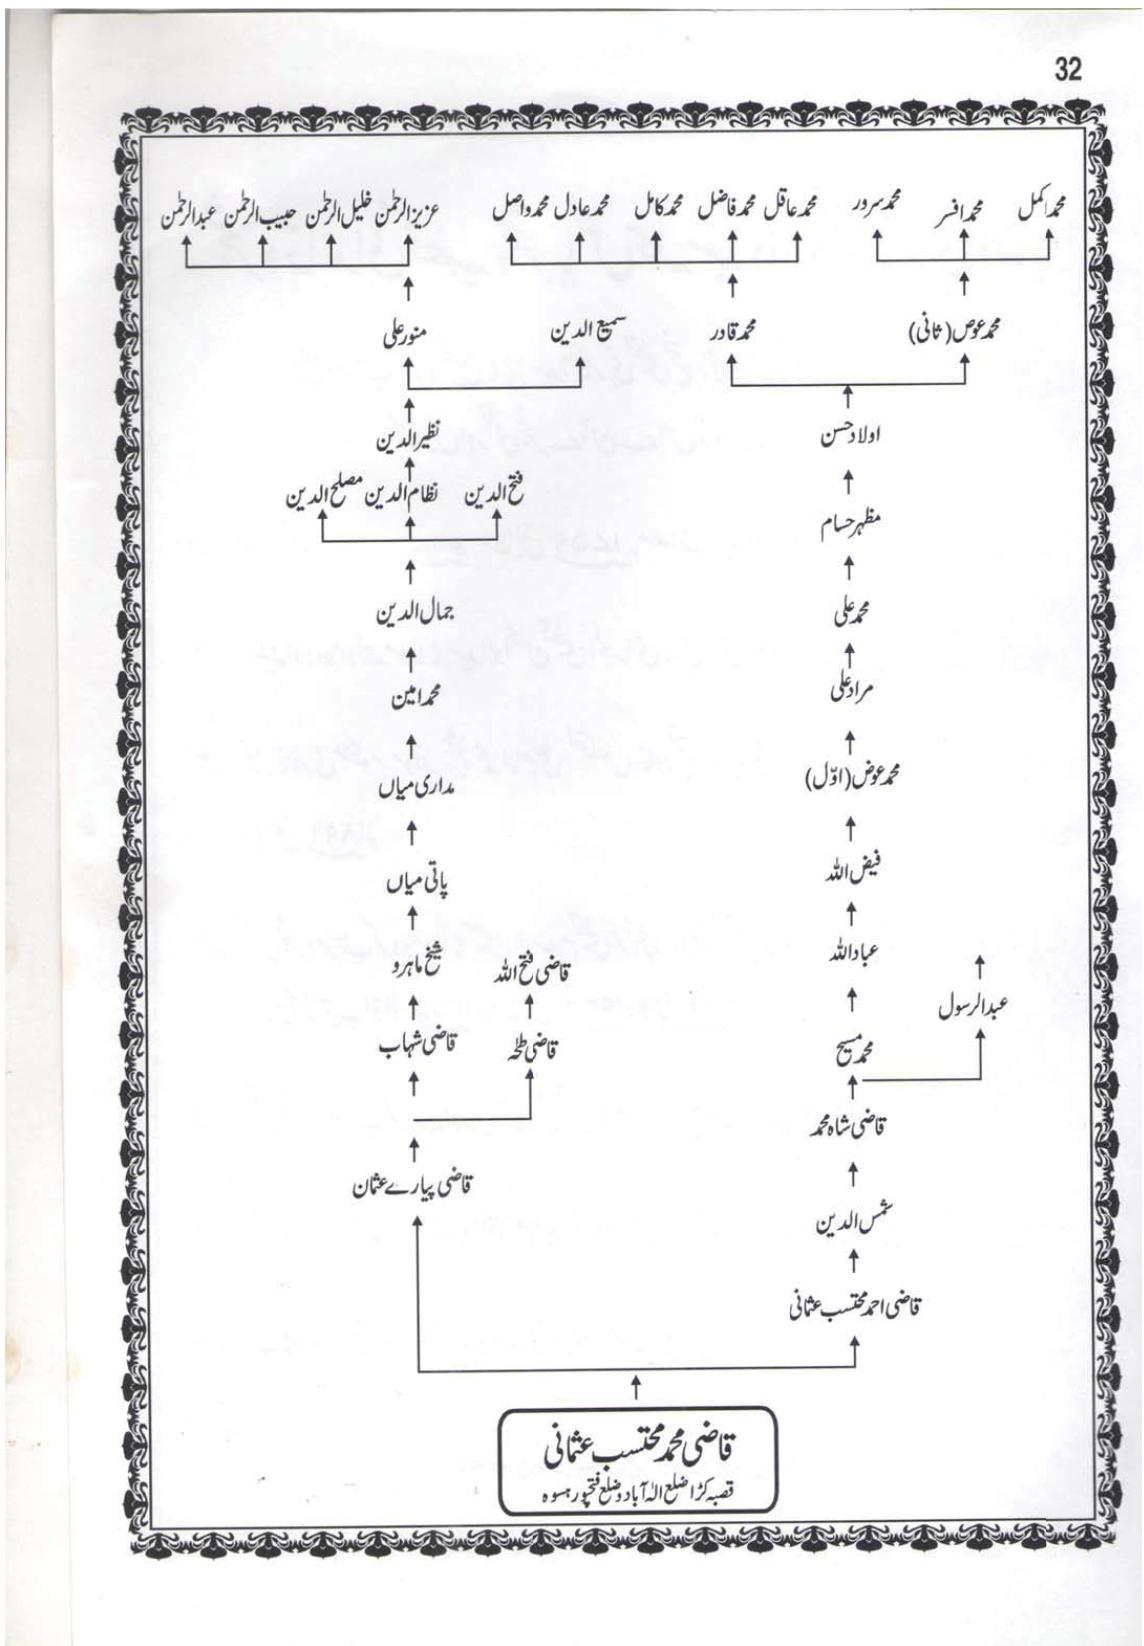 32
محمد اکمل محمد افسر محمد سرور محمد عاقل محمد فاضل محمد کامل محمد عادل محمد واصل عزیز الرحمٰن خلیل الرحمٰن حبیب الرحمٰن عبدالرحمٰن
محمد عوض (ثانی) محمد قادر سمیع الدین منور علی
اولاد حسن نظیر الدین
فتح الدین نظام الدین مصلح الدین
مظہر حسام
محمد علی جمال الدین
مراد علی محمد امین
محمد عوض (اوّل) مداری میاں
فیض اللہ پاتی میاں
عباد اللہ قاضی فتح اللہ شیخ ماہرو
عبدالرسول
محمد مسیح قاضی طٰہٰ قاضی شہاب
قاضی شاہ محمد
قاضی پیارے عثمان
شمس الدین
قاضی احمد محتسب عثمانی
قاضی محمد محتسب عثمانی
قصبہ کڑا ضلع الہٰ آباد و ضلع فتحپور ہسوہ